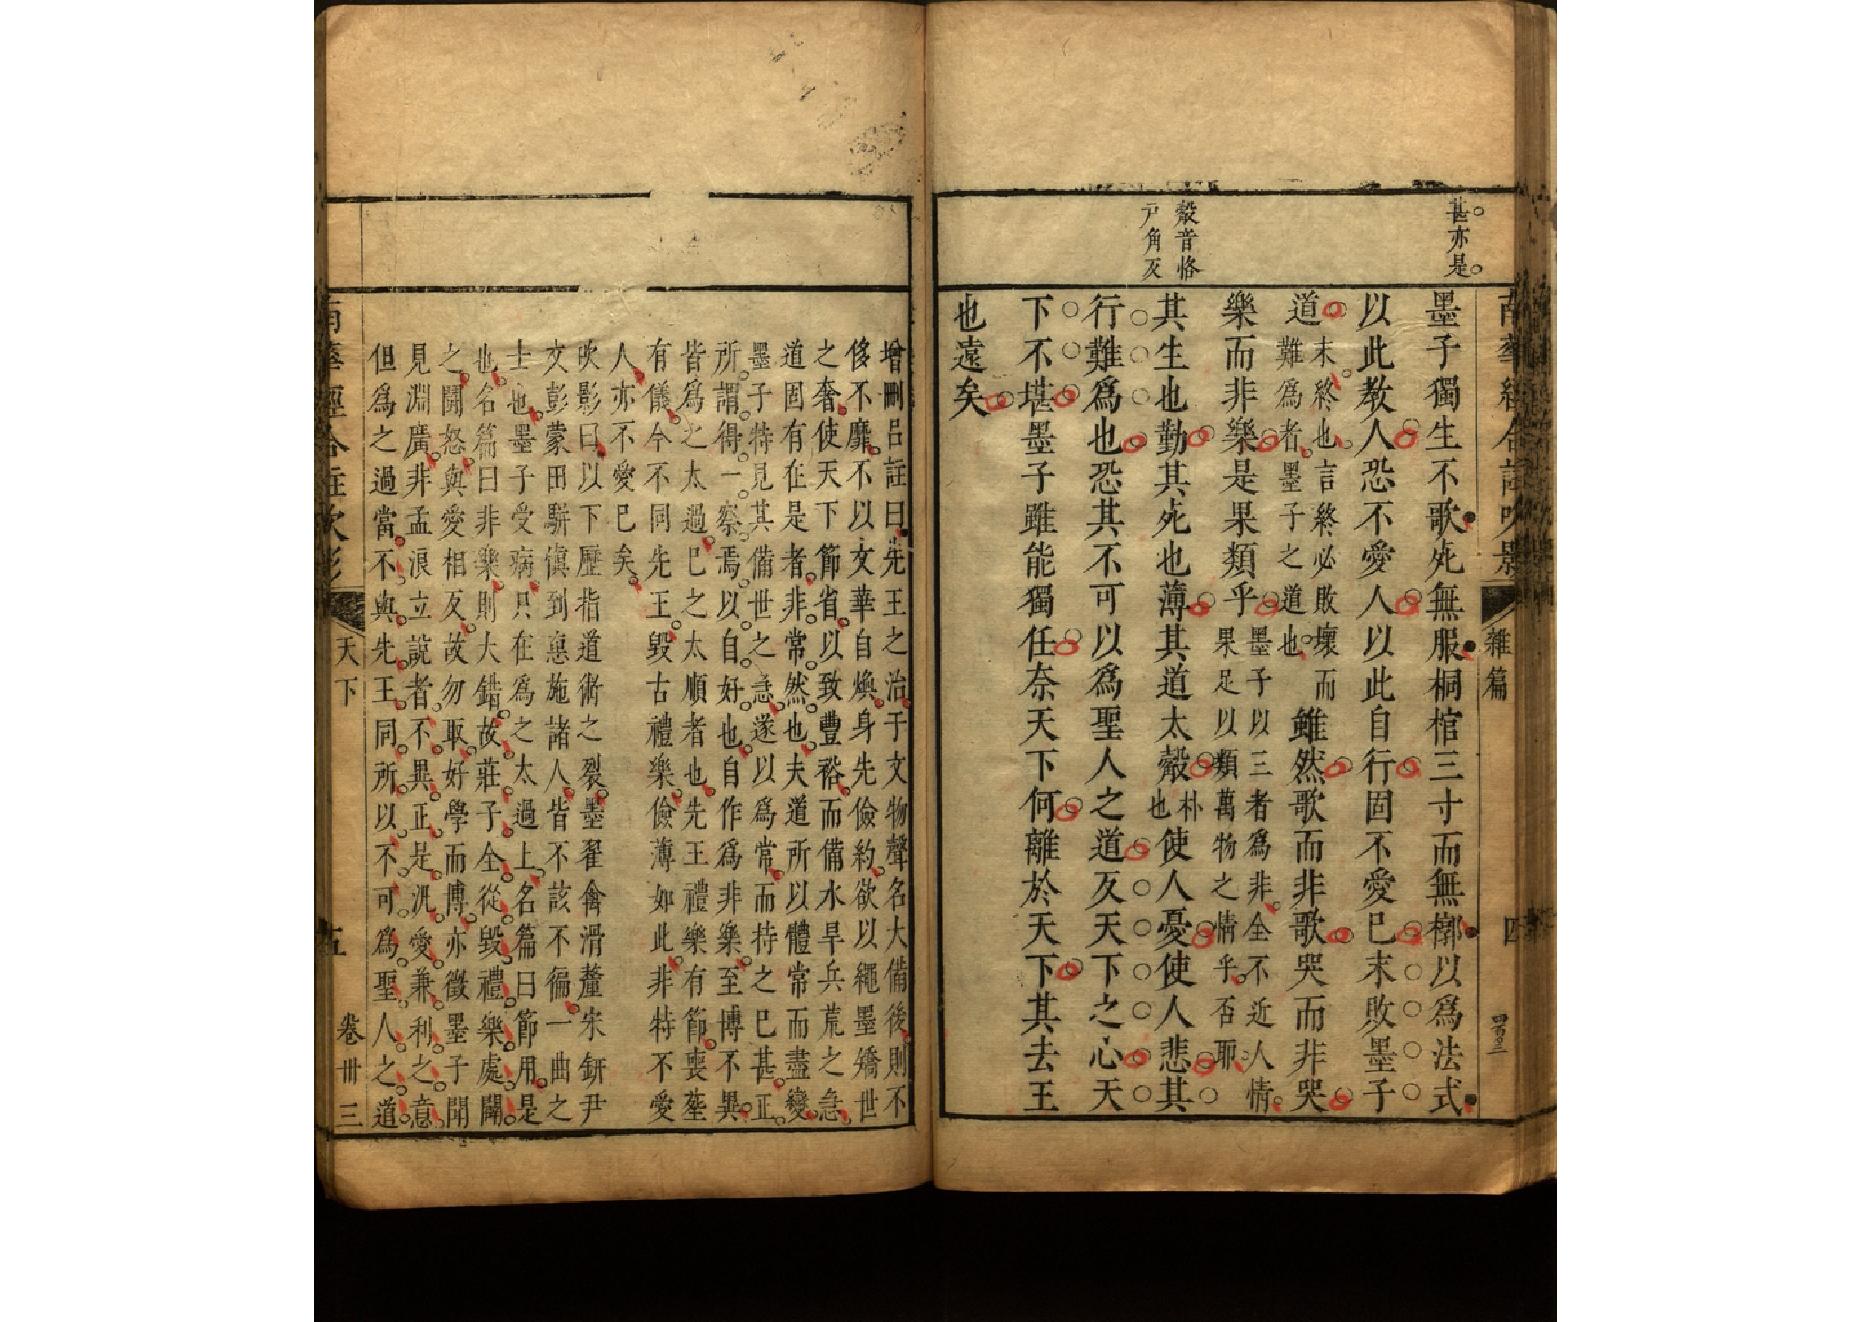 甚亦是
觳音恪
戸角反
墨子獨生不歌死無服桐棺三寸而無槨以爲法式
以此教人恐不愛人以此自行固不愛己未敗墨子
道未終也言終必敗壞而難爲者墨子之道也雖然歌而非歌哭而非哭
樂而非樂是果類乎墨子以三者爲非全不近人情果足以類萬物之情乎否耶
其生也勤其死也薄其道太觳朴也使人憂使人悲其
行難爲也恐其不可以爲聖人之道反天下之心天
下不堪墨子雖能獨任奈天下何離於天下其去王
也遠矣
南華經合註吹影
雜篇
四
增刪呂註曰先王之治于文物聲名大備後則不
侈不靡不以文華自煥身先儉約欲以繩墨矯世
之奢使天下節省以致豐裕而備水旱兵荒之急
道固有在是者非常然也夫道所以體常而盡變
墨子特見其備世之急遂以爲常而持之已甚正
所謂得一察焉以自好也自作爲非樂至博不異
皆爲之太過已之太順者也先王禮樂有節喪塟
有儀今不同先王毀古禮樂儉薄如此非特不愛
人亦不愛已矣
吹影曰以下歷指道術之裂墨翟禽滑釐宋鈃尹
文彭蒙田駢慎到惠施諸人皆不該不徧一曲之
士也墨子受病只在爲之太過上名篇曰節用是
也名篇曰非樂則大錯故莊子全從毀禮樂處闢
之鬪怒與愛相反故勿取好學而博亦微墨子聞
見淵廣非孟浪立說者不異正是汎愛兼利之意
但爲之過當不與先王同所以不可爲聖人之道
南華經合註吹影
天下
五
卷卅三